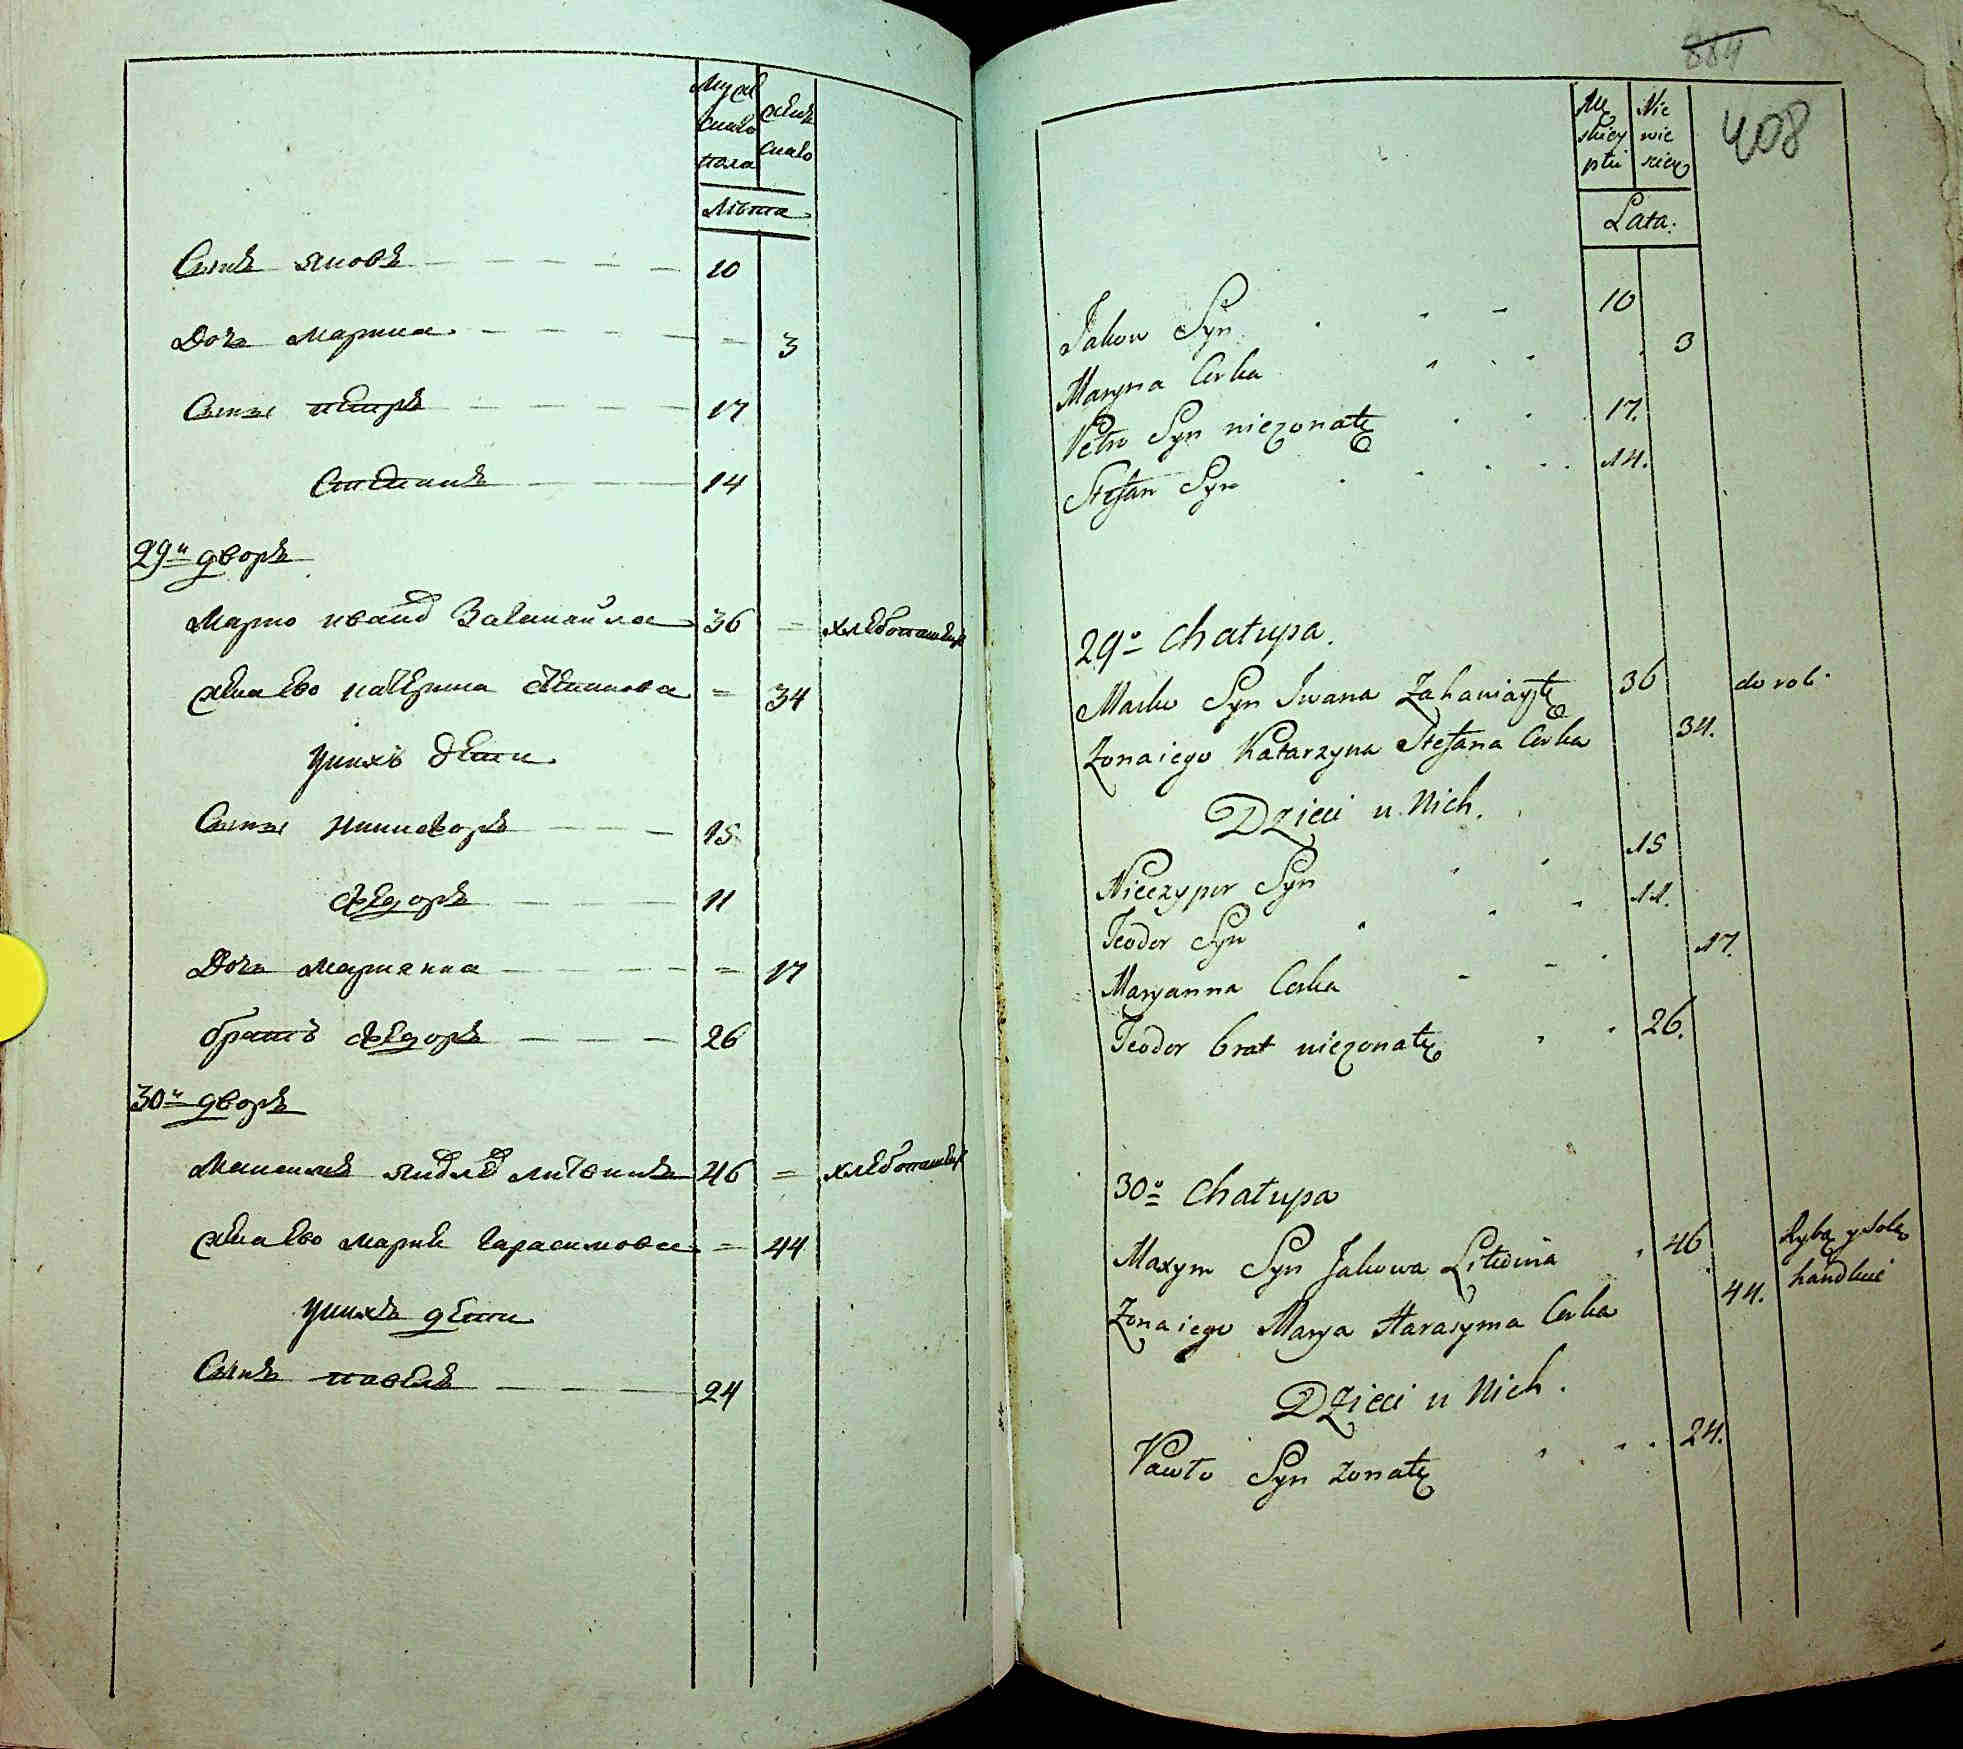 Мужескаго пола
женскаго
Лѣта
Сынъ яковъ 10
Дочь марина 3
Сыны петръ 17
Степанъ 14
29й дворъ
Марко иванов 36 = хлебопашец
жена ево катерина степанова = 34
у нихъ дети
Сыны Ничипоръ 15
Федоръ 11
Дочь марянна = 17
братъ Федоръ 26
30й дворъ
Максимъ яковлев литвинъ 46 = хлебопашец
жена ево мария Гарасимова = 44
у нихъ дети
Сынъ павелъ 24
884
408
Męskiey płci
Niewieskiey
Lata.
Jakow Syn 10
Maryna Corka 3
Petro Syn niezonaty 17.
Stefan Syn 14.
29o Chałupa.
Marko Syn Iwana 36 do rob.
Zona iego Katarzyna Stefana Corka 34.
Dzieci u Nich.
Nieczypor Syn 15
Teodor Syn 11.
Maryanna Corka 17.
Teodor brat niezonaty 26.
30o Chałupa
Maxym Syn Jakowa Litwina 46 Rybą y Solą
handluie
Zona iego Marya Harasyma Corka 44.
Dzieci u Nich.
Pawło Syn zonaty 24.